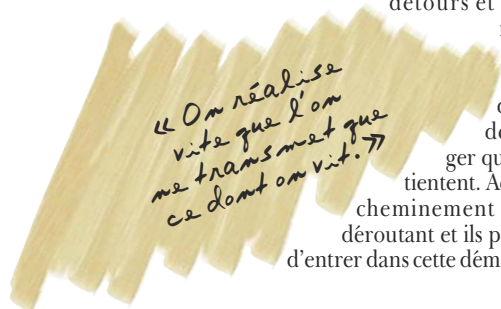 détours et
« On réalise
vite que l'on
ne transmet que
ce dont on vit. »
ger qu
tientent. A
cheminement
déroutant et ils p
d'entrer dans cette dém